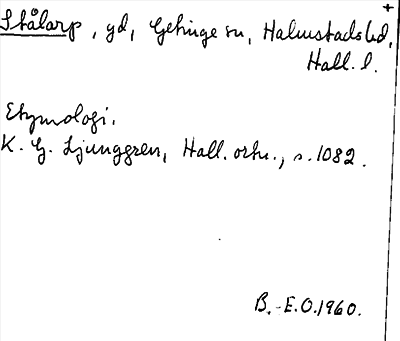 Stålarp, gd, Getinge sn, Halmstads hd,
Hall. l.
Etymologi.
K. G. Ljunggren, Hall. ortn., s. 1082.
B.-E.O. 1960.